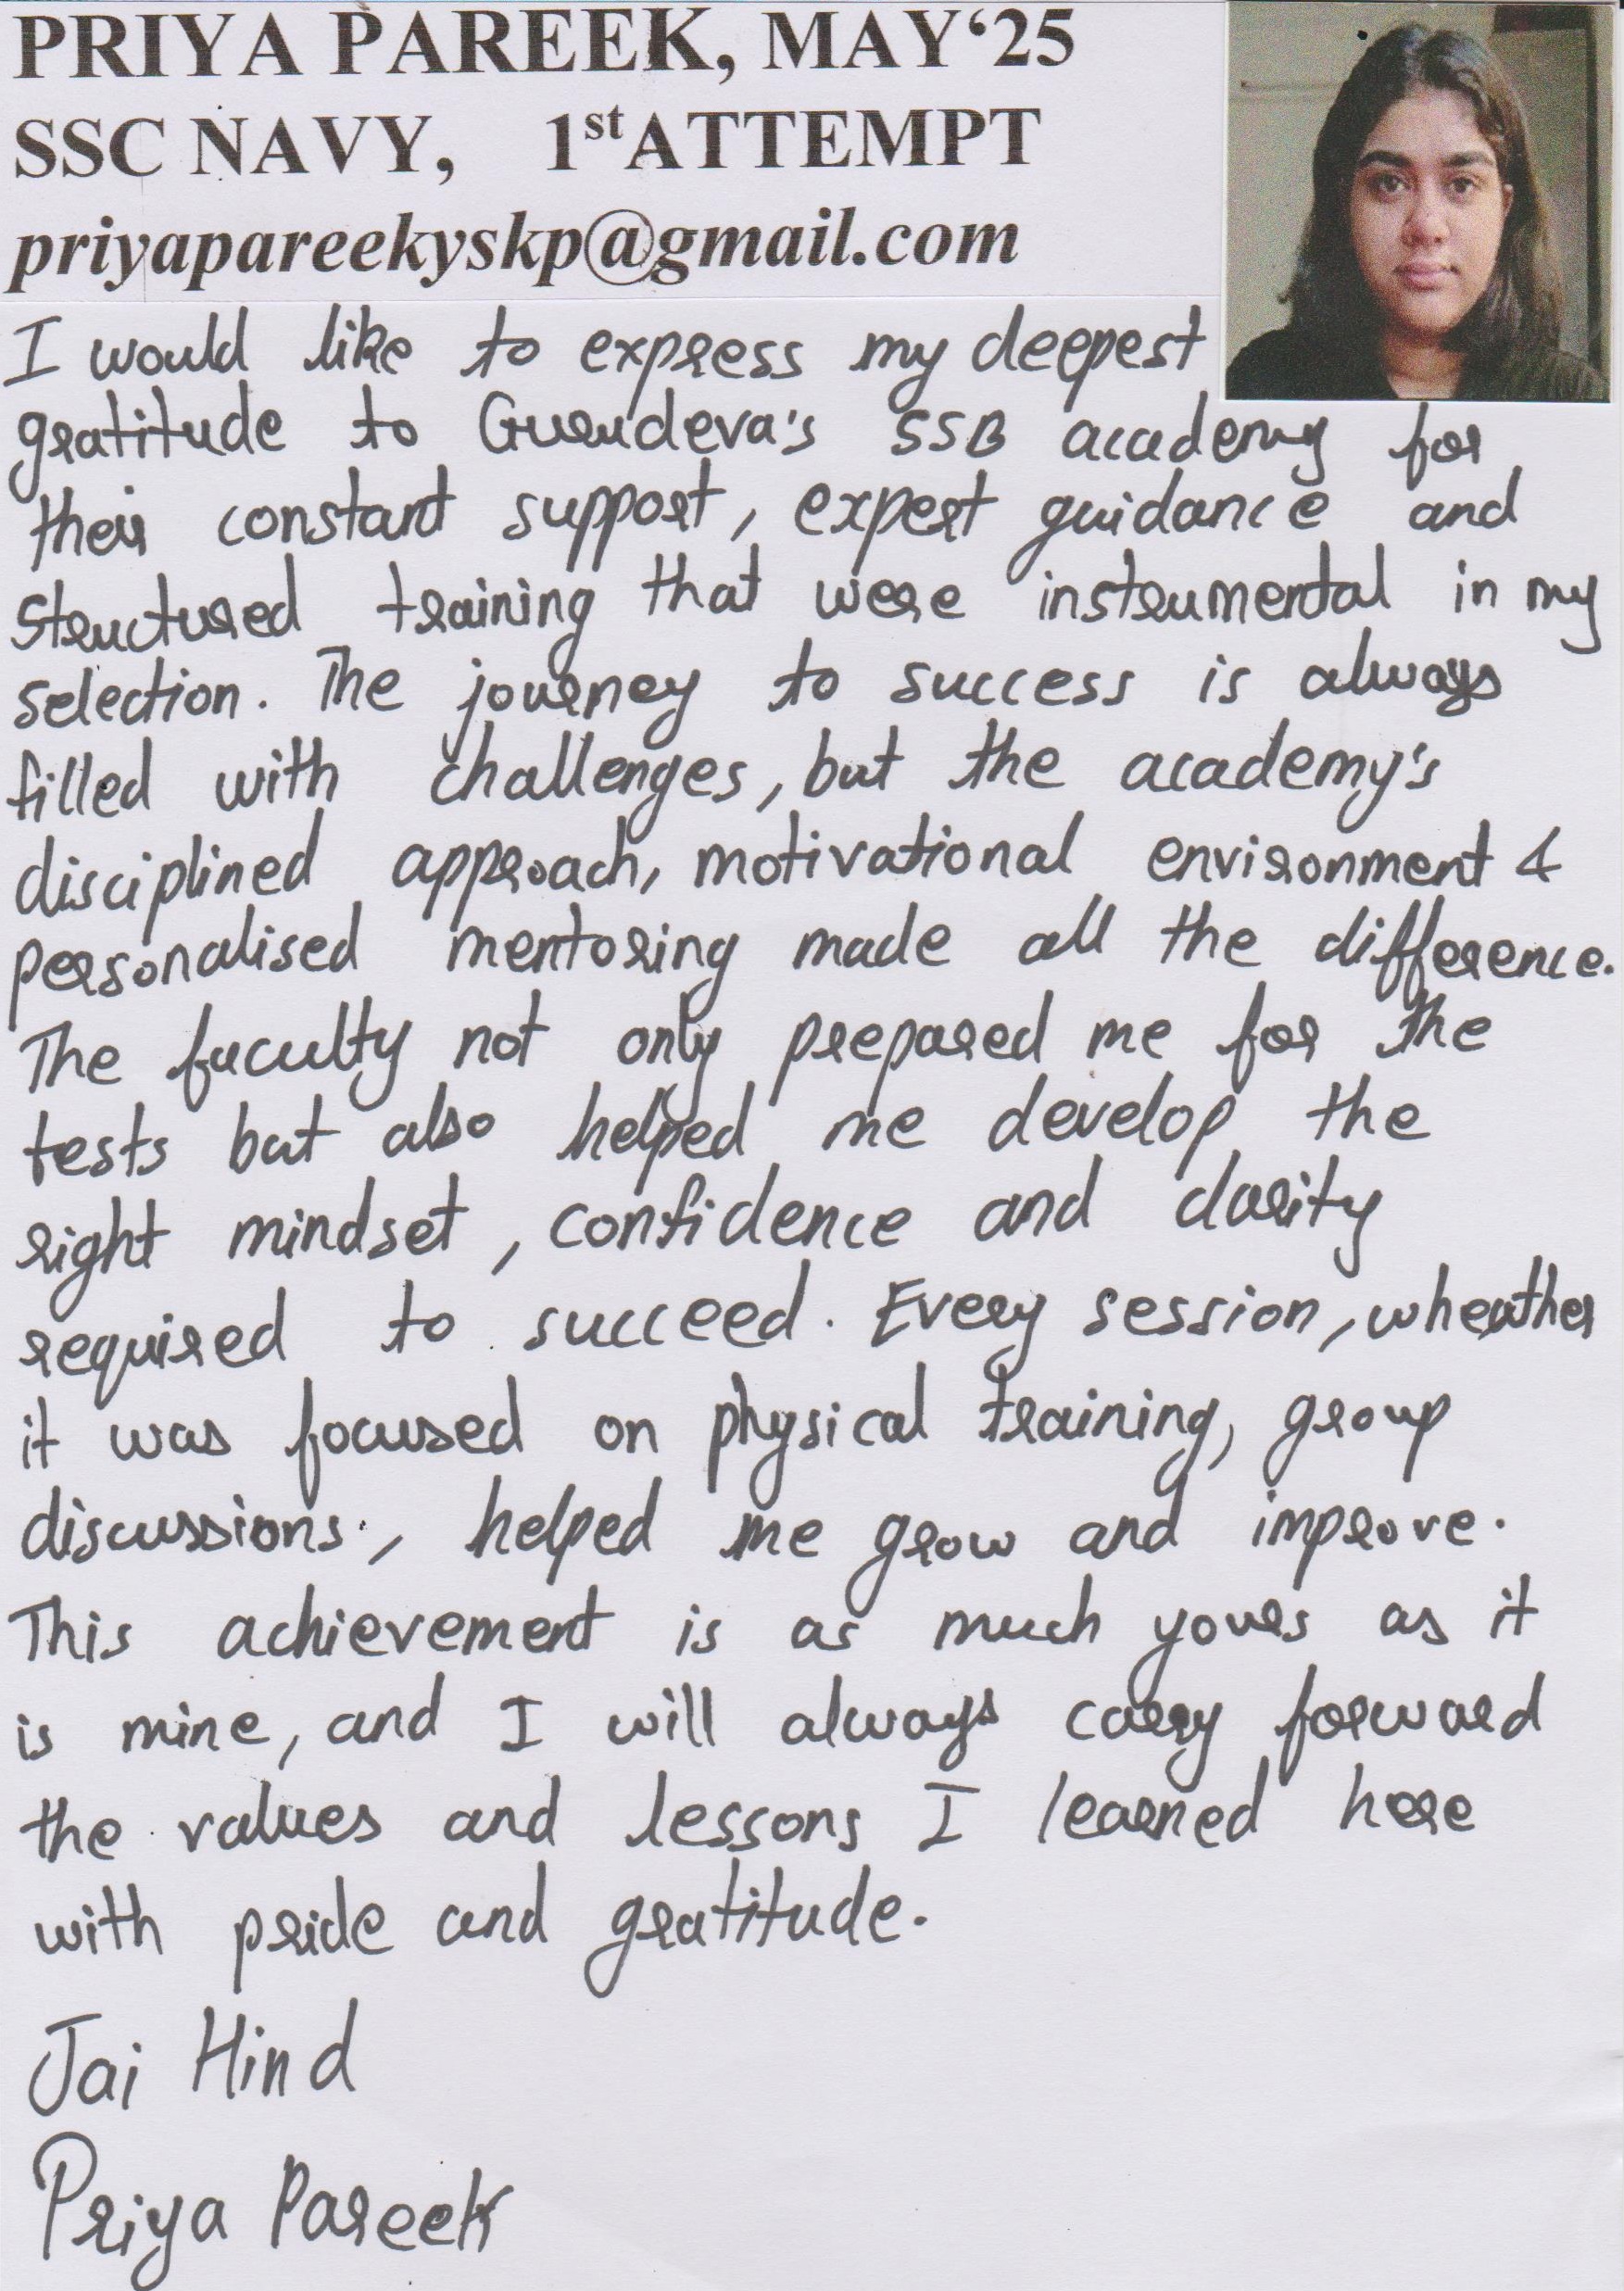 PRIYA PAREEK, MAY‘25
SSC NAVY, 1st ATTEMPT
priyapareekyskp@gmail.com
I would like to express my deepest
gratitude to Gurudeva's SSB academy for
their constant support, expert guidance and
structured training that were instrumental in my
selection. The journey to success is always
filled with challenges, but the academy's
disciplined approach, motivational environment &
personalised mentoring made all the difference.
The faculty not only prepared me for the
tests but also helped me develop the
right mindset, confidence and clarity
required to succeed. Every session, wheather
it was focused on physical training, group
discussions, helped me grow and improve.
This achievement is as much yours as it
is mine, and I will always carry forward
the values and lessons I learned here
with pride and gratitude.
Jai Hind
Priya Pareek